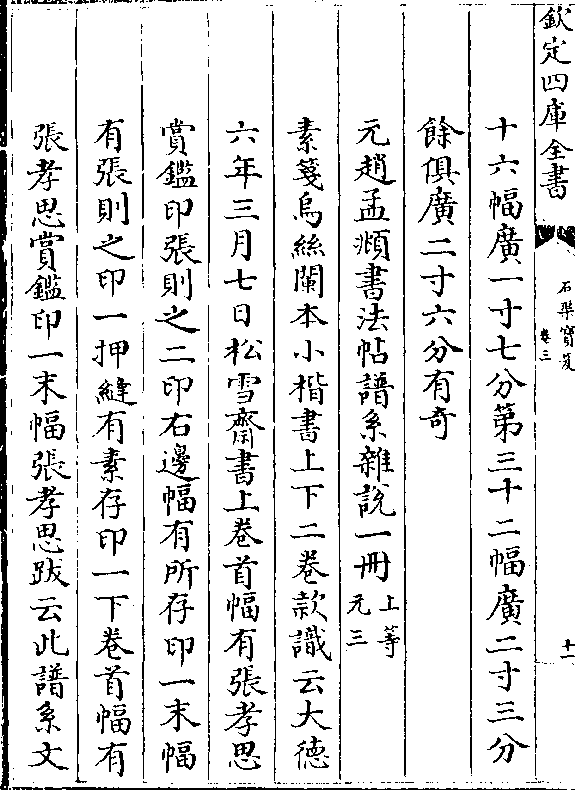 欽定四庫全書
石渠寶笈
卷三
十一
十六幅廣一寸七分第三十二幅廣二寸三分
餘俱廣二寸六分有奇
元趙孟頫書法帖譜系雜説一冊上等元三
素箋烏絲闌本小楷書上下二卷款識云大德
六年三月七日松雪齋書上卷首幅有張孝思
賞鑑印張則之二印右邊幅有所存印一末幅
有張則之印一押縫有素存印一下卷首幅有
張孝思賞鑑印一末幅張孝思跋云此譜系文